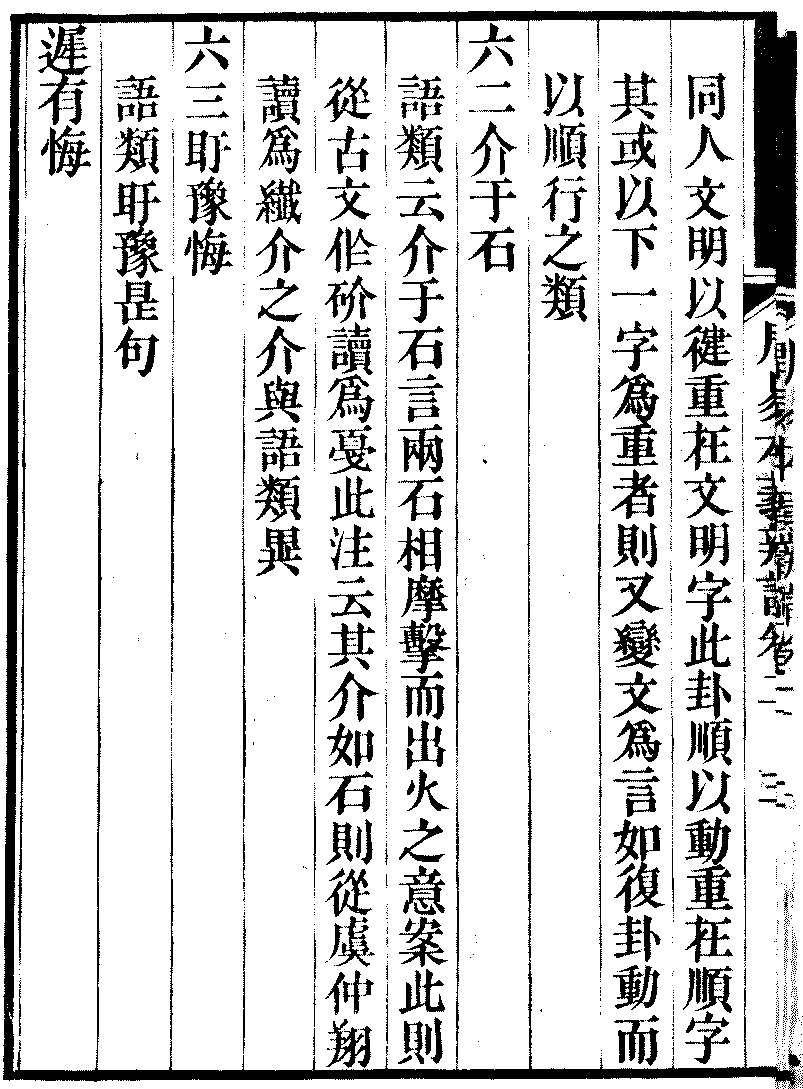 周易本義辨證卷二 三
同人文明以徤重在文明字此卦順以動重在順字
其或以下一字爲重者則又變文爲言如復卦動而
以順行之類
六二介于石
語類云介于石言兩石相摩擊而出火之意案此則
從古文作砎讀爲戞此注云其介如石則從虞仲翔
讀爲纖介之介與語類異
六三盱豫悔
語類盱豫昰句
遲有悔